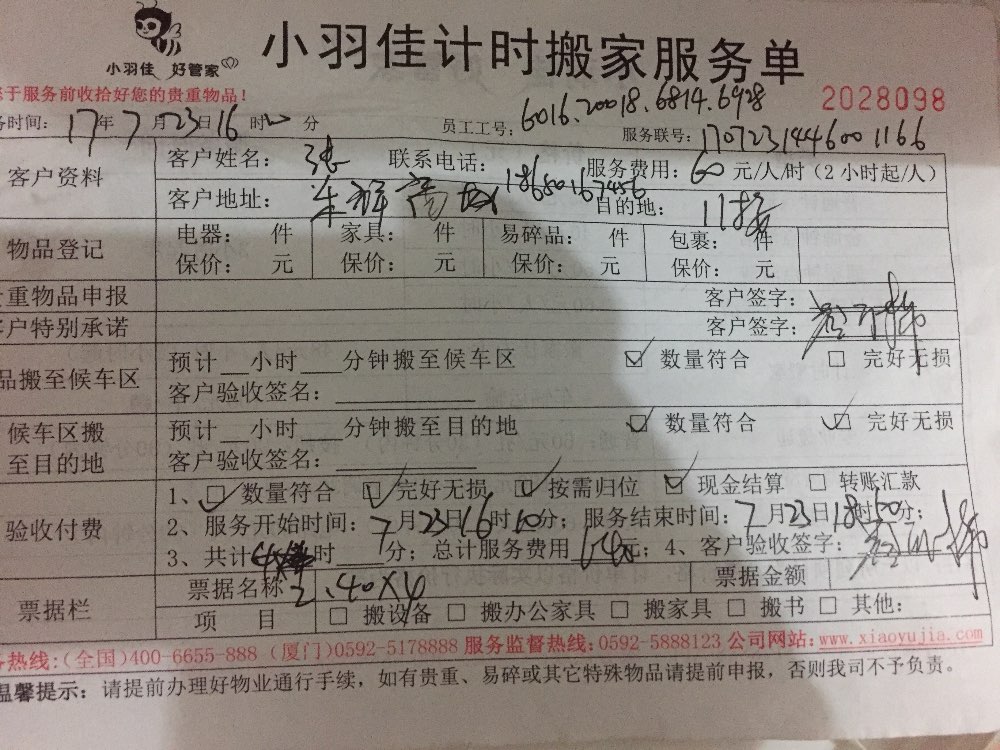 小羽佳 好管家
小羽佳计时搬家服务单
于服务前收拾好您的贵重物品！
2028098
务时间：17年7月23日16时 分 员工工号：6016.20018.6814.6928
服务联号：17072314446001166
客户资料 客户姓名： 张 联系电话： 18650167456 服务费用：60元/人/时（2小时起/人）
客户地址： 目的地：
物品登记 电器： 件 家具： 件 易碎品： 件 包裹： 件
保价： 元 保价： 元 保价： 元 保价： 元
重物品申报 客户签字：
户特别承诺 客户签字：
品搬至候车区 预计__小时___分钟搬至候车区 ☑ 数量符合 □ 完好无损
客户验收签名：
候车区搬至目的地 预计__小时___分钟搬至目的地 ☑ 数量符合 ☑ 完好无损
客户验收签名：
验收付费 1、☑ 数量符合 ☑ 完好无损 ☑ 按需归位 ☑ 现金结算 □ 转账汇款
2、服务开始时间：7月23日16时10分；服务结束时间：7月23日18时50分；
3、共计 时 分；总计服务费用640元；4、客户验收签字：
票据栏 票据名称 2.40×4 票据金额
项 目 □ 搬设备 □ 搬办公家具 □ 搬家具 □ 搬书 □ 其他：
务热线：(全国)400-6655-888 (厦门)0592-5178888 服务监督热线：0592-5888123 公司网站：www.xiaoyujia.com
温馨提示：请提前办理好物业通行手续，如有贵重、易碎或其它特殊物品请提前申报，否则我司不予负责。